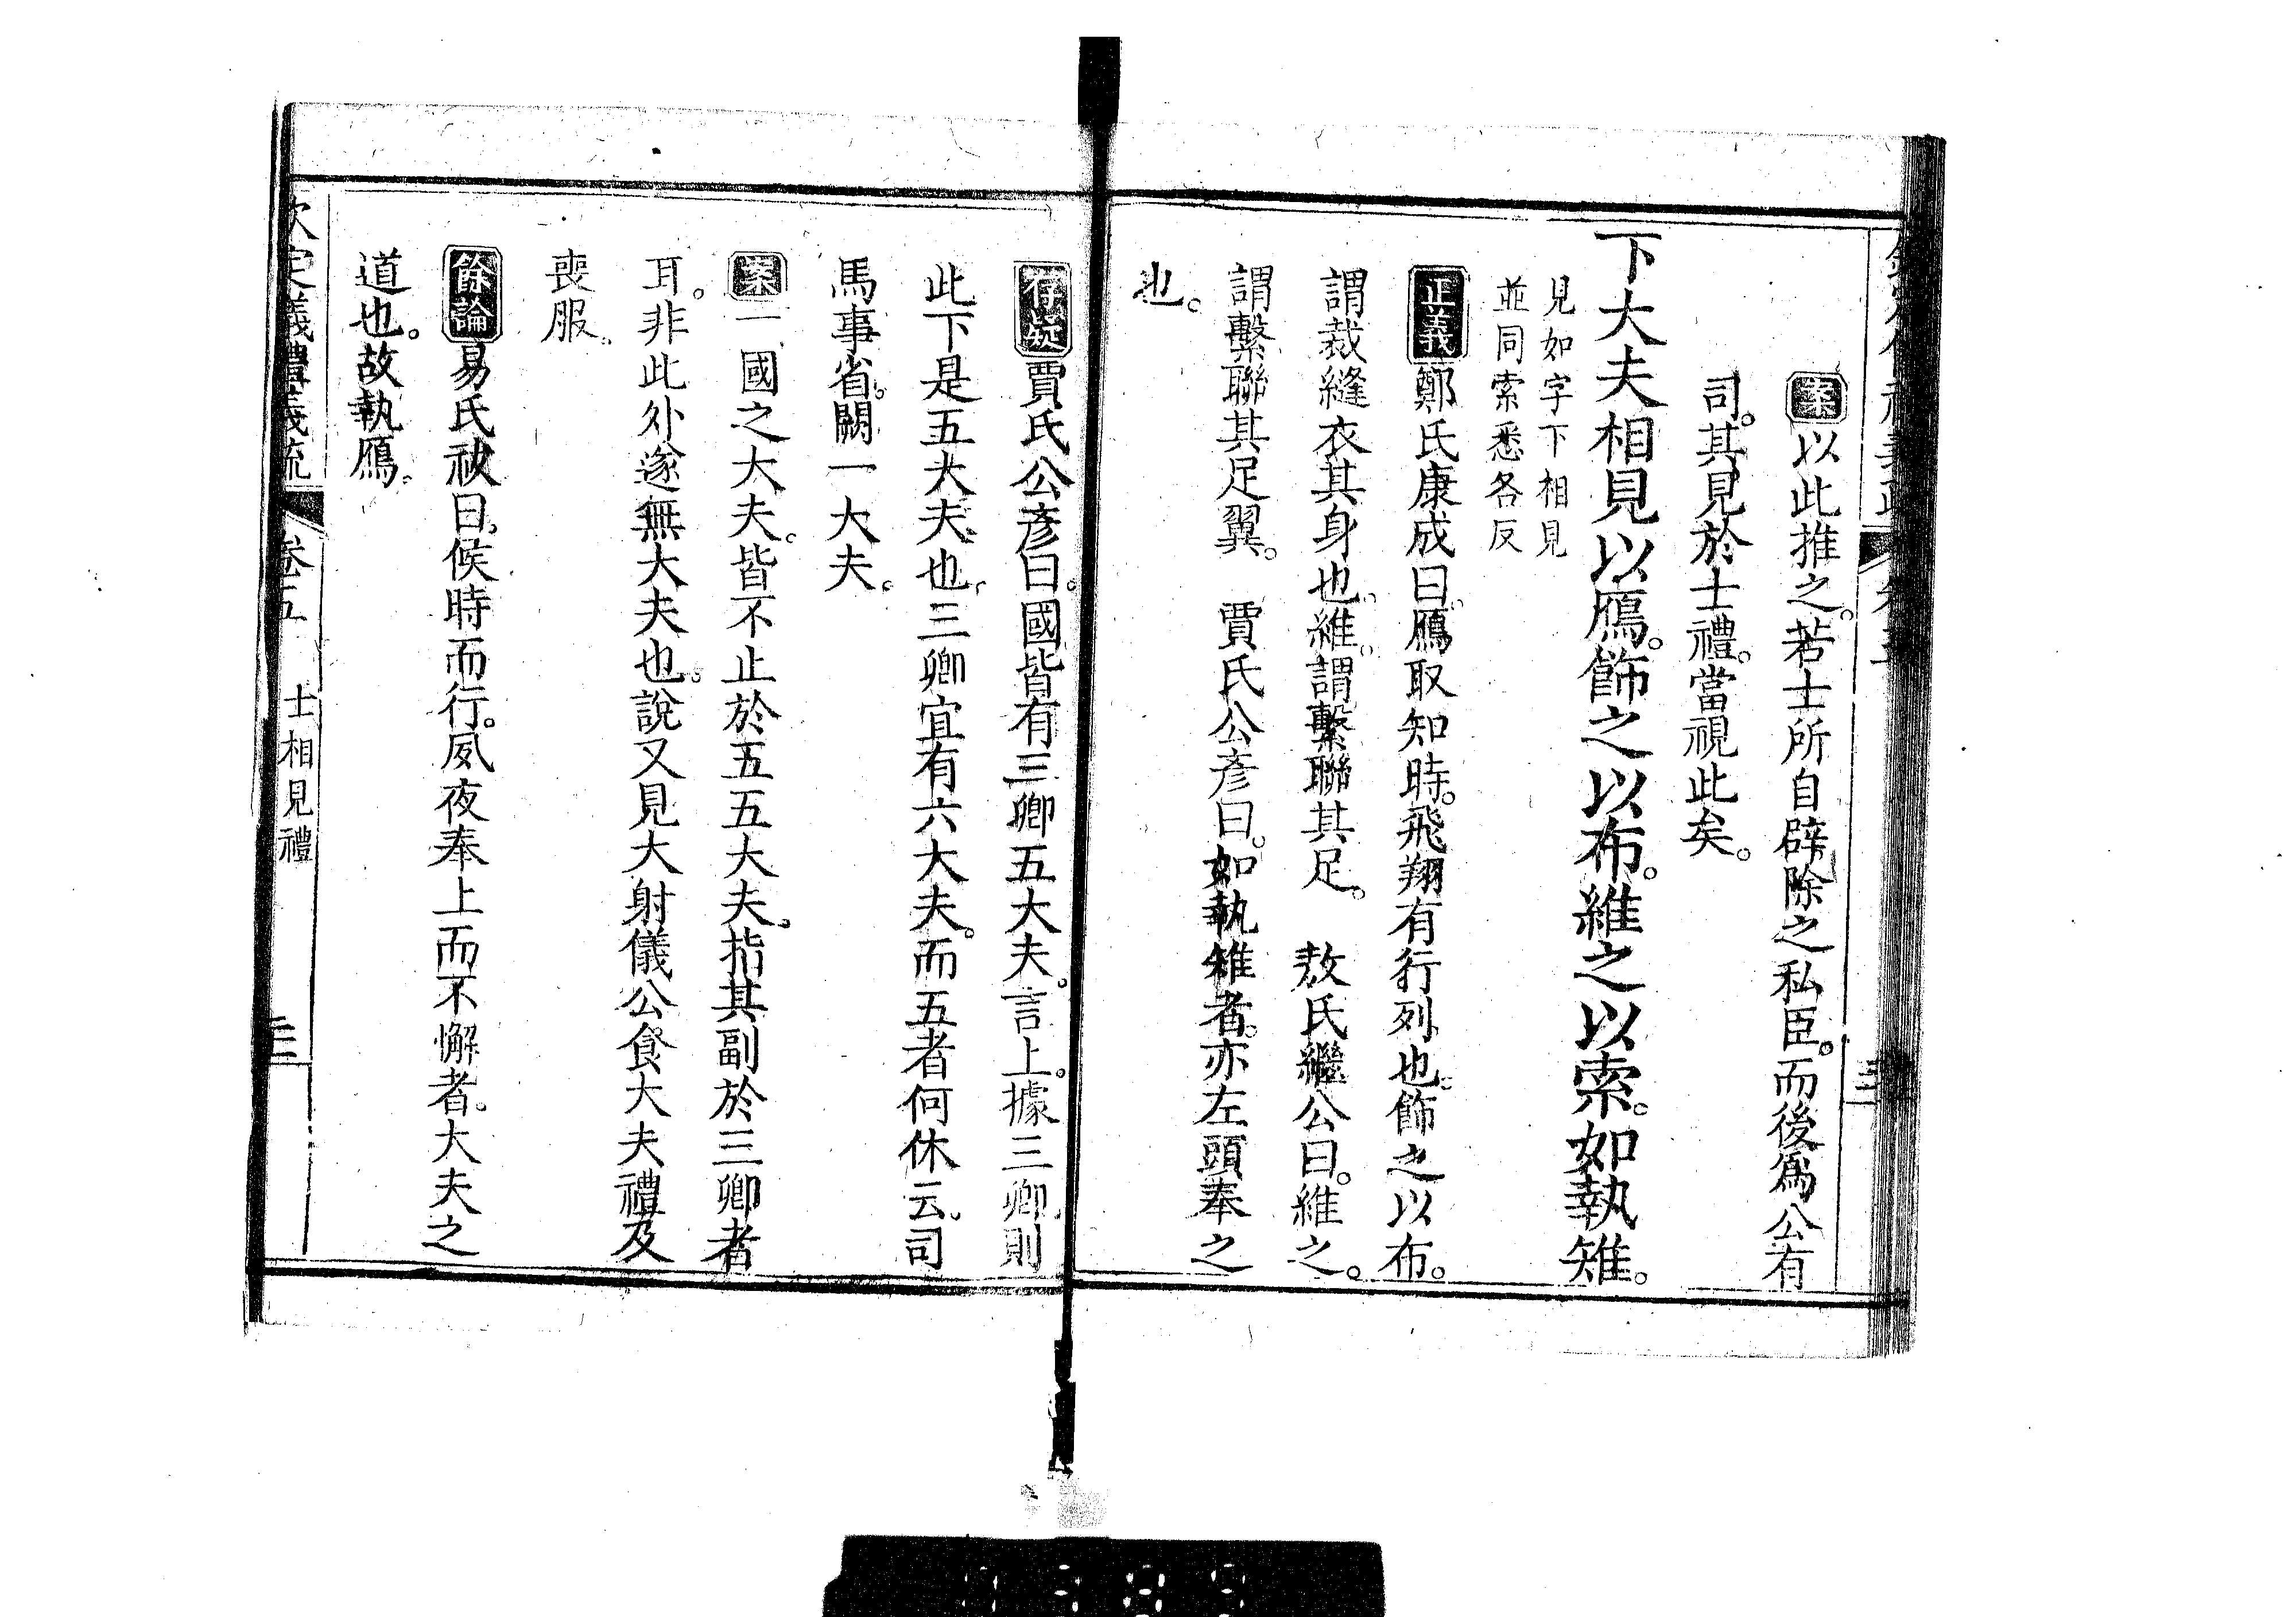 案以此推之。若士所自辟除之私臣。而後爲公有
司。其見於士禮。當視此矣。
下大夫相見以鴈。飾之以布。維之以索。如執雉。
見如字下相見
並同索悉各反
正義鄭氏康成曰。鴈取知時。飛翔有行列也。飾之以布。
謂裁縫衣其身也。維。謂繫聯其足。　敖氏繼公曰。維之。
謂繫聯其足翼。　賈氏公彥曰。如執雉者。亦左頭奉之
也。
存疑賈氏公彥曰。國皆有三卿五大夫。言上。據三卿。則
此下是五大夫也。三卿宜有六大夫。而五者何休云。司
馬事省。闕一大夫。
案一國之大夫。皆不止於五五大夫。指其副於三卿者
耳。非此外遂無大夫也。說又見大射儀公食大夫禮及
喪服。
餘論易氏祓曰。候時而行。夙夜奉上而不懈者。大夫之
道也。故執鴈。
欽定儀禮義疏　卷五　士相見禮　三